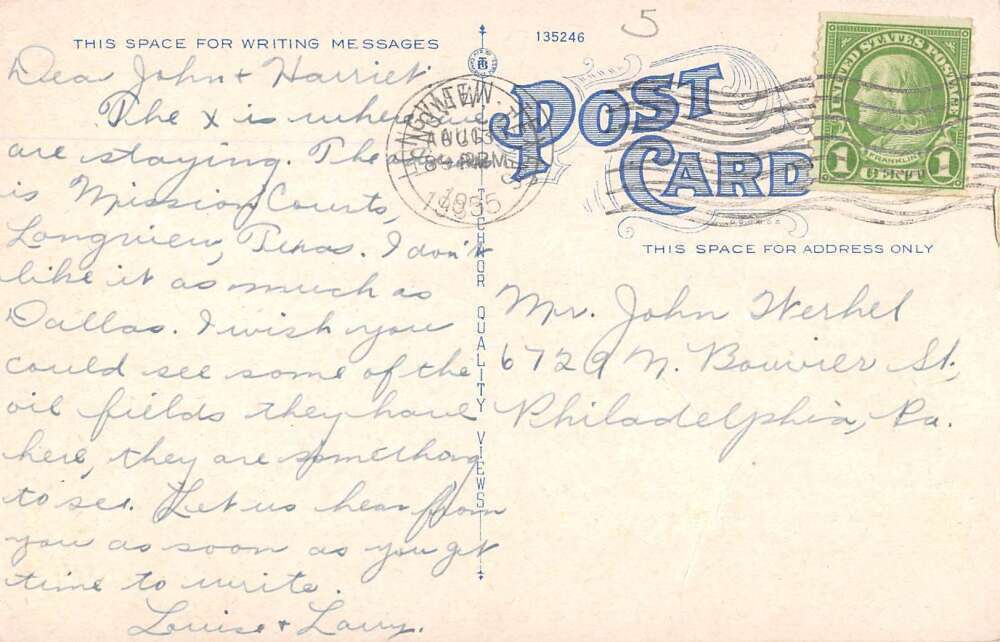 THIS SPACE FOR WRITING MESSAGES
135246
5
POST
CARD
UNITED STATES POSTAGE
FRANKLIN
1 CENT 1
THIS SPACE FOR ADDRESS ONLY
LONGVIEW
AUG
1935
Dear John + Harriet
The X is where we
are staying. The
is Mission Courts,
Longview, Texas. I don't
like it as much as
Dallas. I wish you
could see some of the
oil fields they have
here, they are something
to see. Let us hear from
you as soon as you get
time to write.
Louise + Larry.
TICHNOR QUALITY VIEWS
Mr. John Werhel
6729 N. Bouvier St,
Philadelphia, Pa.